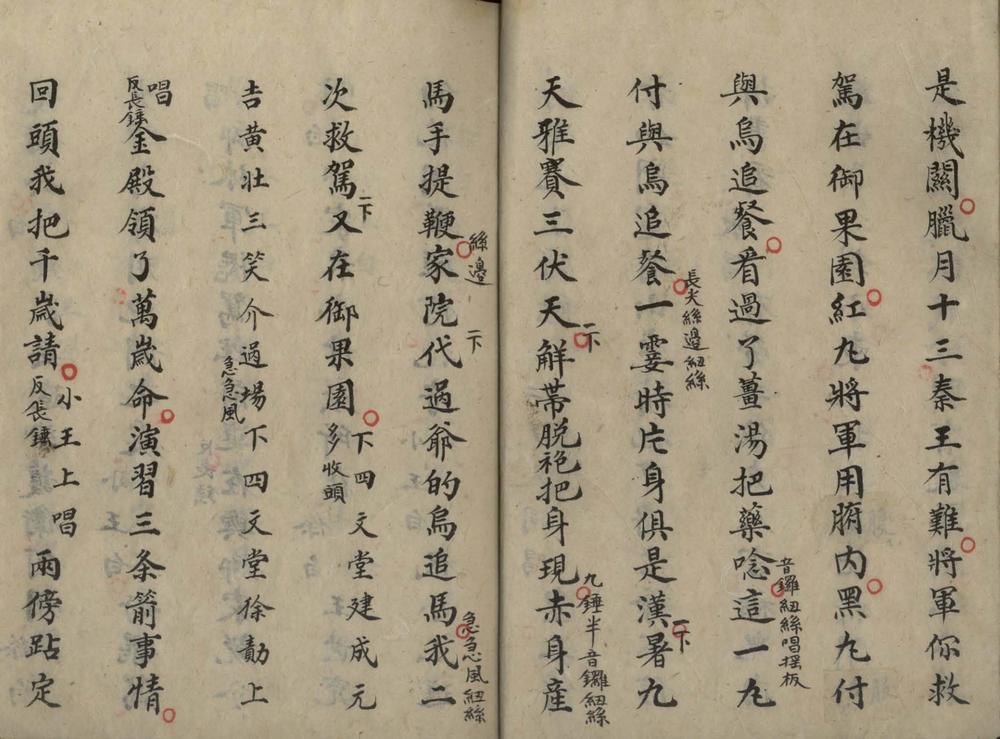 是機關臘月十三秦王有難將軍你救
駕在御果園紅九將軍用腑内黑九付
與烏追餐看過了薑湯把藥唸這一九
音鑼紐絲唱摇板
付與烏追餐一霎時片身俱是漢暑九
長夫絲邊紐絲
一下
天雅賽三伏天解帯脱袍把身現赤身産
一下
九錘半音鑼紐絲
馬手提鞭家院代過爺的烏追馬我二
絲邊
一下
急急風紐絲
次救駕又在御果園多收頭下四文堂建成元
一下
吉黄壯三笑介過場下四文堂徐勣上
急急風
唱反長錘金殿領了萬歲命演習三条箭事情
回頭我把千歲請反長錘小王上唱兩傍跕定